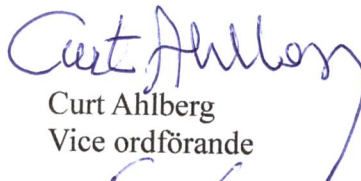 Curt Ahlberg
Curt Ahlberg
Vice ordförande